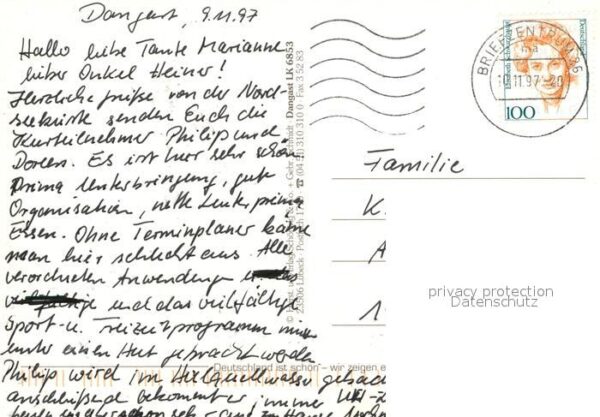 Dangast, 9.11.97
Hallo liebe Tante Marianne
lieber Onkel Heiner!
Herzliche Grüße von der Nord-
seeküste senden Euch die
Kurteilnehmer Philip und
Doreen. Es ist hier sehr schön
Prima Unterbringung, gute
Organisation, nette Leute, prima
Essen. Ohne Terminplaner käme
man hier schlecht aus. Alle
verordneten Anwendungen
und das vielfältige
Sport- u. Freizeitprogramm müssen
unter einen Hut gebracht werden
Philip wird im Heilquellwasser gebadet
anschließend bekommt er immer UV-
Dangast LK 6853
23506 Lübeck · Postfach
Fax 3 52 83
Deutschland ist schön – wir zeigen e
BRIEFZENTRUM 26
10.11.97 - 20
Deutschland
100
Familie
K.
A
1
privacy protection
Datenschutz